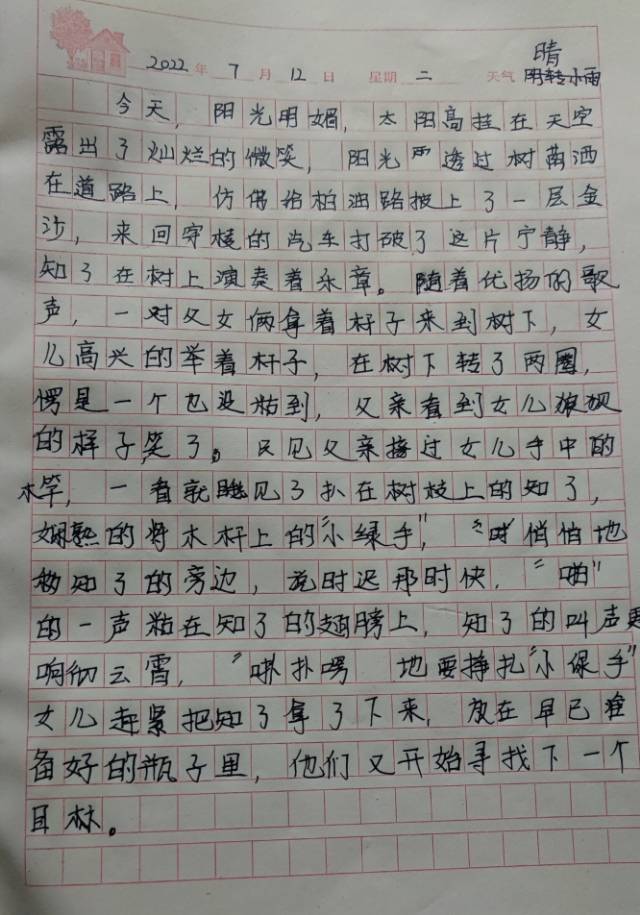 晴
2022年 7月 12日 星期 二 天气 阴转小雨
今天，阳光明媚，太阳高挂在天空
露出了灿烂的微笑，阳光透过树荫洒
在道路上，仿佛给柏油路披上了一层金
沙，来回穿梭的汽车打破了这片宁静，
知了在树上演奏着乐章。随着优扬的歌
声，一对父女俩拿着杆子来到树下，女
儿高兴的举着杆子，在树下转了两圈，
愣是一个也没粘到，父亲看到女儿狼狈
的样子笑了。只见父亲接过女儿手中的
木竿，一看就瞧见了扒在树枝上的知了，
娴熟的将木杆上的“小绿手”，悄悄地
知了的旁边，说时迟那时快，“啪”
的一声粘在知了的翅膀上，知了的叫声更
响彻云霄，地要挣扎“小绿手”
女儿赶紧把知了拿了下来，放在早已准
备好的瓶子里，他们又开始寻找下一个
目标。